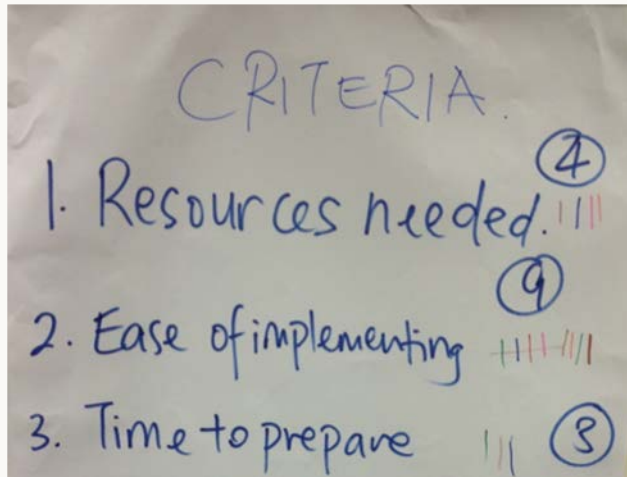 CRITERIA.
④
1. Resources needed.
⑨
2. Ease of implementing
3. Time to prepare ③